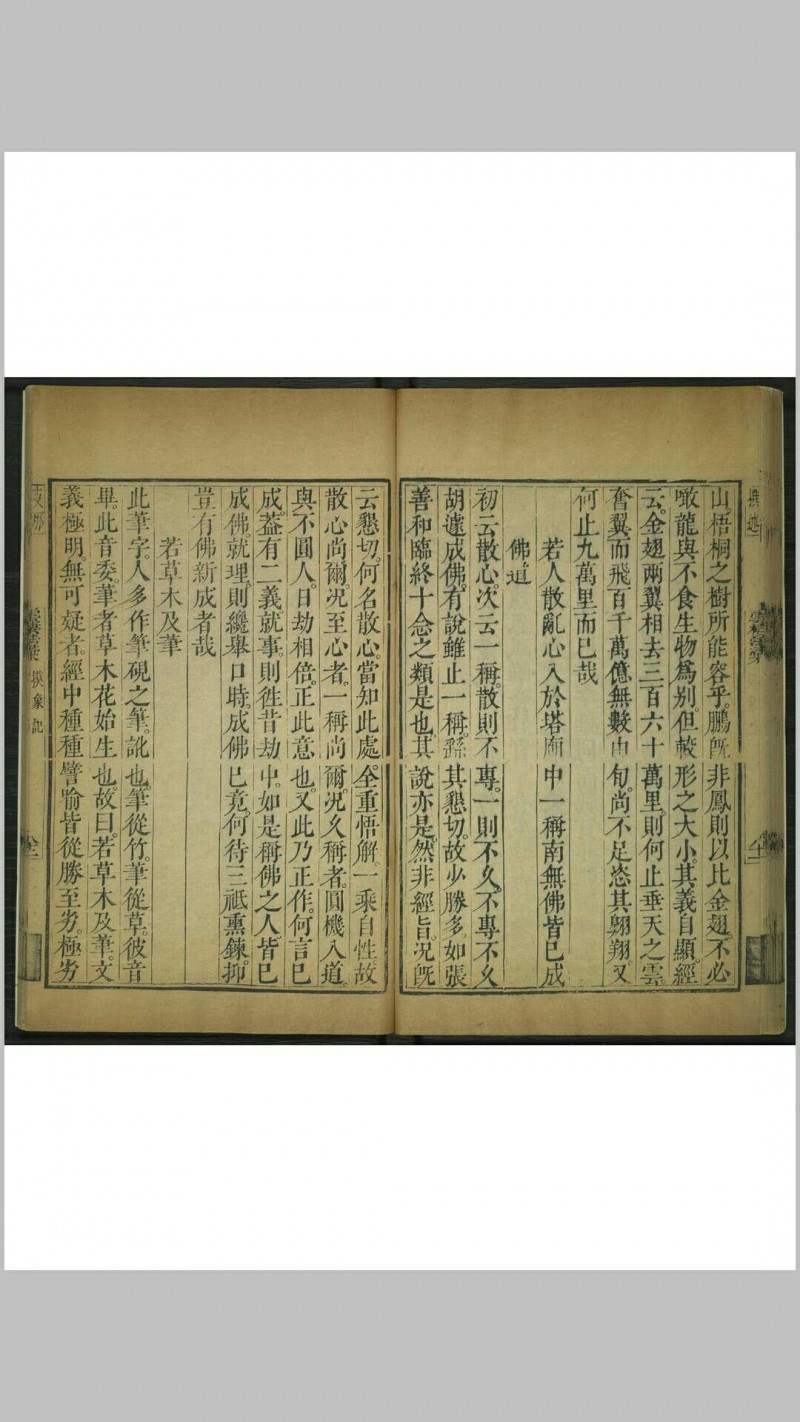 山。梧桐之樹所能容乎。鵬既非鳳則以比金翅。不必
噉龍與不食生物為別。但較形之大小。其義自顯。經
云。金翅兩翼相去三百六十萬里。則何止垂天之雲。
奮翼而飛百千萬億無數由旬。尚不足恣其翱翔。又
何止九萬里而已哉
若人散亂心入於塔廟中一稱南無佛皆已成
佛道
初云散心。次云一稱。散則不專。一則不久。不專不久
胡遽成佛。有說雖止一稱。繇其懇切。故少勝多。如張
善和臨終十念之類是也。其說亦是。然非經旨。況既
云懇切。何名散心。當知此處全重悟解一乘自性故
散心尚爾。況至心者。一稱尚爾。況久稱者。圓機入道。
與不圓人。日劫相倍。正此意也。又此乃正作。何言已
成。蓋有二義。就事。則徃昔劫中。如是稱佛之人皆已
成佛。就理。則纔舉口時。成佛已竟。何待三祇熏鍊。抑
豈有佛新成者哉
若草木及筆
此筆字。人多作筆硯之筆。訛也。筆從竹。筆從草。彼音
畢。此音委。筆者草木花始生也。故曰。若草木及筆。文
義極明。無可疑者。經中種種譬喻皆從勝至劣。極劣
摸象記